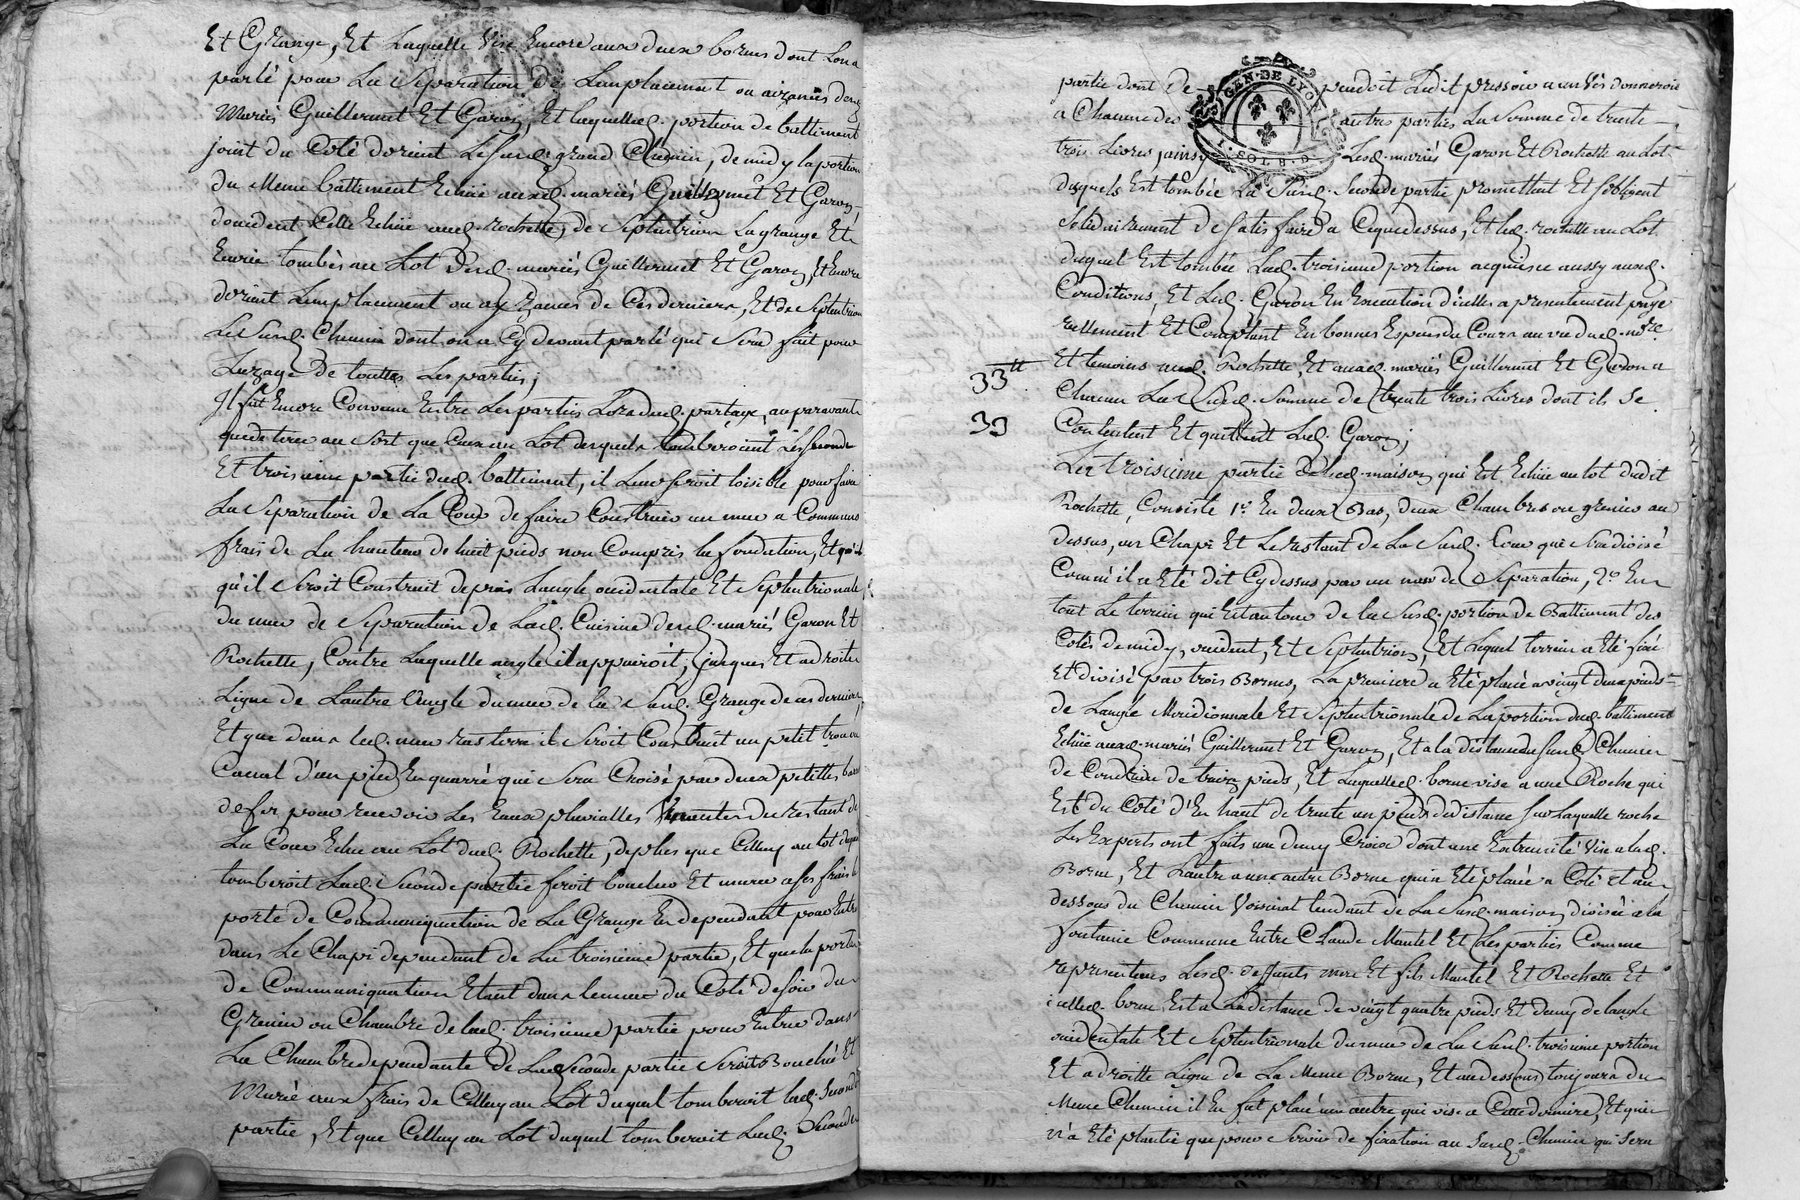 Et Grange, Et Laquelle vise Encore aux deux bornes dont Lon a
parlé pour La Separation de Lemplacement ou aizances desd.
Mariés Guillermet Et Garon, Et laquelled. portion de battiment
joint du Coté dorient Le susd. grand Chemin, de midy la portion
du Meme battiment Echüe auxd. mariés Guillermet Et Garon
doccident Celle Echüe aud. rochette, de Septentrion La grange Et
Ecurie tombés au Lot desd. mariés Guillermet Et Garon, Et Encore
dorient Lemplacement ou ayzances de Ces derniers, Et de Septentrion
Le Susd. Chemin dont on a Cy devant parlé qui Sera fait pour
Luzage de touttes Les parties;
Il fut Encore Convenu Entre Les parties Lors dud. partage, auparavant
que de tirer au Sort que Ceux au Lot desquels tomberoient Les Seconde
Et troisieme partie dud. battiment, il Leur Seroit loisible pour faire
La Separation de La Cour de faire Construire un mur a Communs
frais de La hauteur de huit pieds non Compris la fondation, Et
qu'il Seroit Construit depuis Langle occidentale Et Septentrionale
du mur de Separation de Lad. Cuisine desd. mariés Garon Et
Rochette, Contre Laquelle angle il appuiroit, jusques Et a droite
Ligne de Lautre Angle du mur de la Susd. Grange de ces derniers,
Et que dans led. mur ras terre il Seroit Construit un petit trou ou
Canal d'un pied En quarré qui Sera Croisé par deux petittes barres
de fer pour recevoir Les Eaux pluvialles Venantes du restant de
La Cour Echue au Lot dud. Rochette, de plus que Celluy au lot duquel
tomberoit Lad. Seconde partie feroit boucher Et murer a ses frais la
porte de Communiquation de La Grange En dependant pour Entrer
dans Le Chapi dependant de La troisieme partie, Et que la porte
de Communiquation Etant dans le mur du Coté de soir du
Grenier ou Chambre de lad. troisieme partie pour Entrer dans
La Chambre dependante de Lad. Seconde partie Seroit Bouchée Et
Murée aux frais de Celluy au Lot duquel tomberoit lad. Seconde
partie, Et que Celluy au Lot duquel tomberoit Lad. Seconde
GEN. DE LYON
1. SOL 8. D.
partie dont dependoit Ledit pressoir a un vis donneroit
a Chacune des autres parties La Somme de trente
trois Livres, Lesd. mariés Garon Et Rochette au Lot
duquels Est tombée La Susd. Seconde partie promettent Et Sobligent
Solidairement de Satisfaire a Ceque dessus, Et led. rochette au Lot
duquel Est tombée Lad. troisieme portion acquiesce aussy auxd.
Conditions, Et Led. Garon En Execution d'icelles a presentement payé
reellement Et Comptant En bonnes Especes du Cours au vu dud. no.re
Et temoins aud. Rochette, Et auxd. mariés Guillermet Et Garon a
33 tt
Chacun La Susd. Somme de trente trois Livres dont ils Se
33
Contentent Et quittent Led. Garon;
La troisieme partie de lad. maison qui Est Echüe au lot dudit
Rochette, Consiste 1º En deux Bas, deux Chambres ou greniers au
dessus, un Chapi Et Le restant de La Susd. Cour qui Sera divisé
Comm'il a Eté dit Cy dessus par un mur de Separation, 2º En
tout Le terrein qui Est autour de la Susd. portion de Battiment des
Cotés de midy, occident, Et Septentrion, Et Lequel terrein a Eté fixé
Et divisé par trois Bornes, La premiere a Eté placée a vingt deux pieds
de Langle Meridionnale Et Septentrionale de La portion dud. battiment
Echüe auxd. mariés Guillermet Et Garon, Et a la distance du Susd. Chemin
de Condrieu de treize pieds, Et Laquelled. borne vise a une Roche qui
Est du Coté d'En haut de trente un pieds de distance Sur Laquelle roche
Les Experts ont faits une demy Croix dont une Extremité vise a lad.
Borne, Et Lautre a une autre Borne qui a Eté placée a Coté et au
dessous du Chemin Voisinat tendant de La Susd. maison divisée a la
fontaine Commune Entre Claude Mantel Et Les parties Comme
representans Lesd. deffunts mere Et fils Mantel Et Rochette Et
icelled. borne Est a La distance de vingt quatre pieds Et demy de langle
occidentale Et Septentrionale du mur de La Susd. troisieme portion
Et a droitte Ligne de La Meme Borne, Et au dessous toujours du
Meme Chemin il En fut placé une autre qui vise a Cette derniere, Et qui
n'a Eté plantée que pour Servir de fixation au Susd. Chemin qui Sera